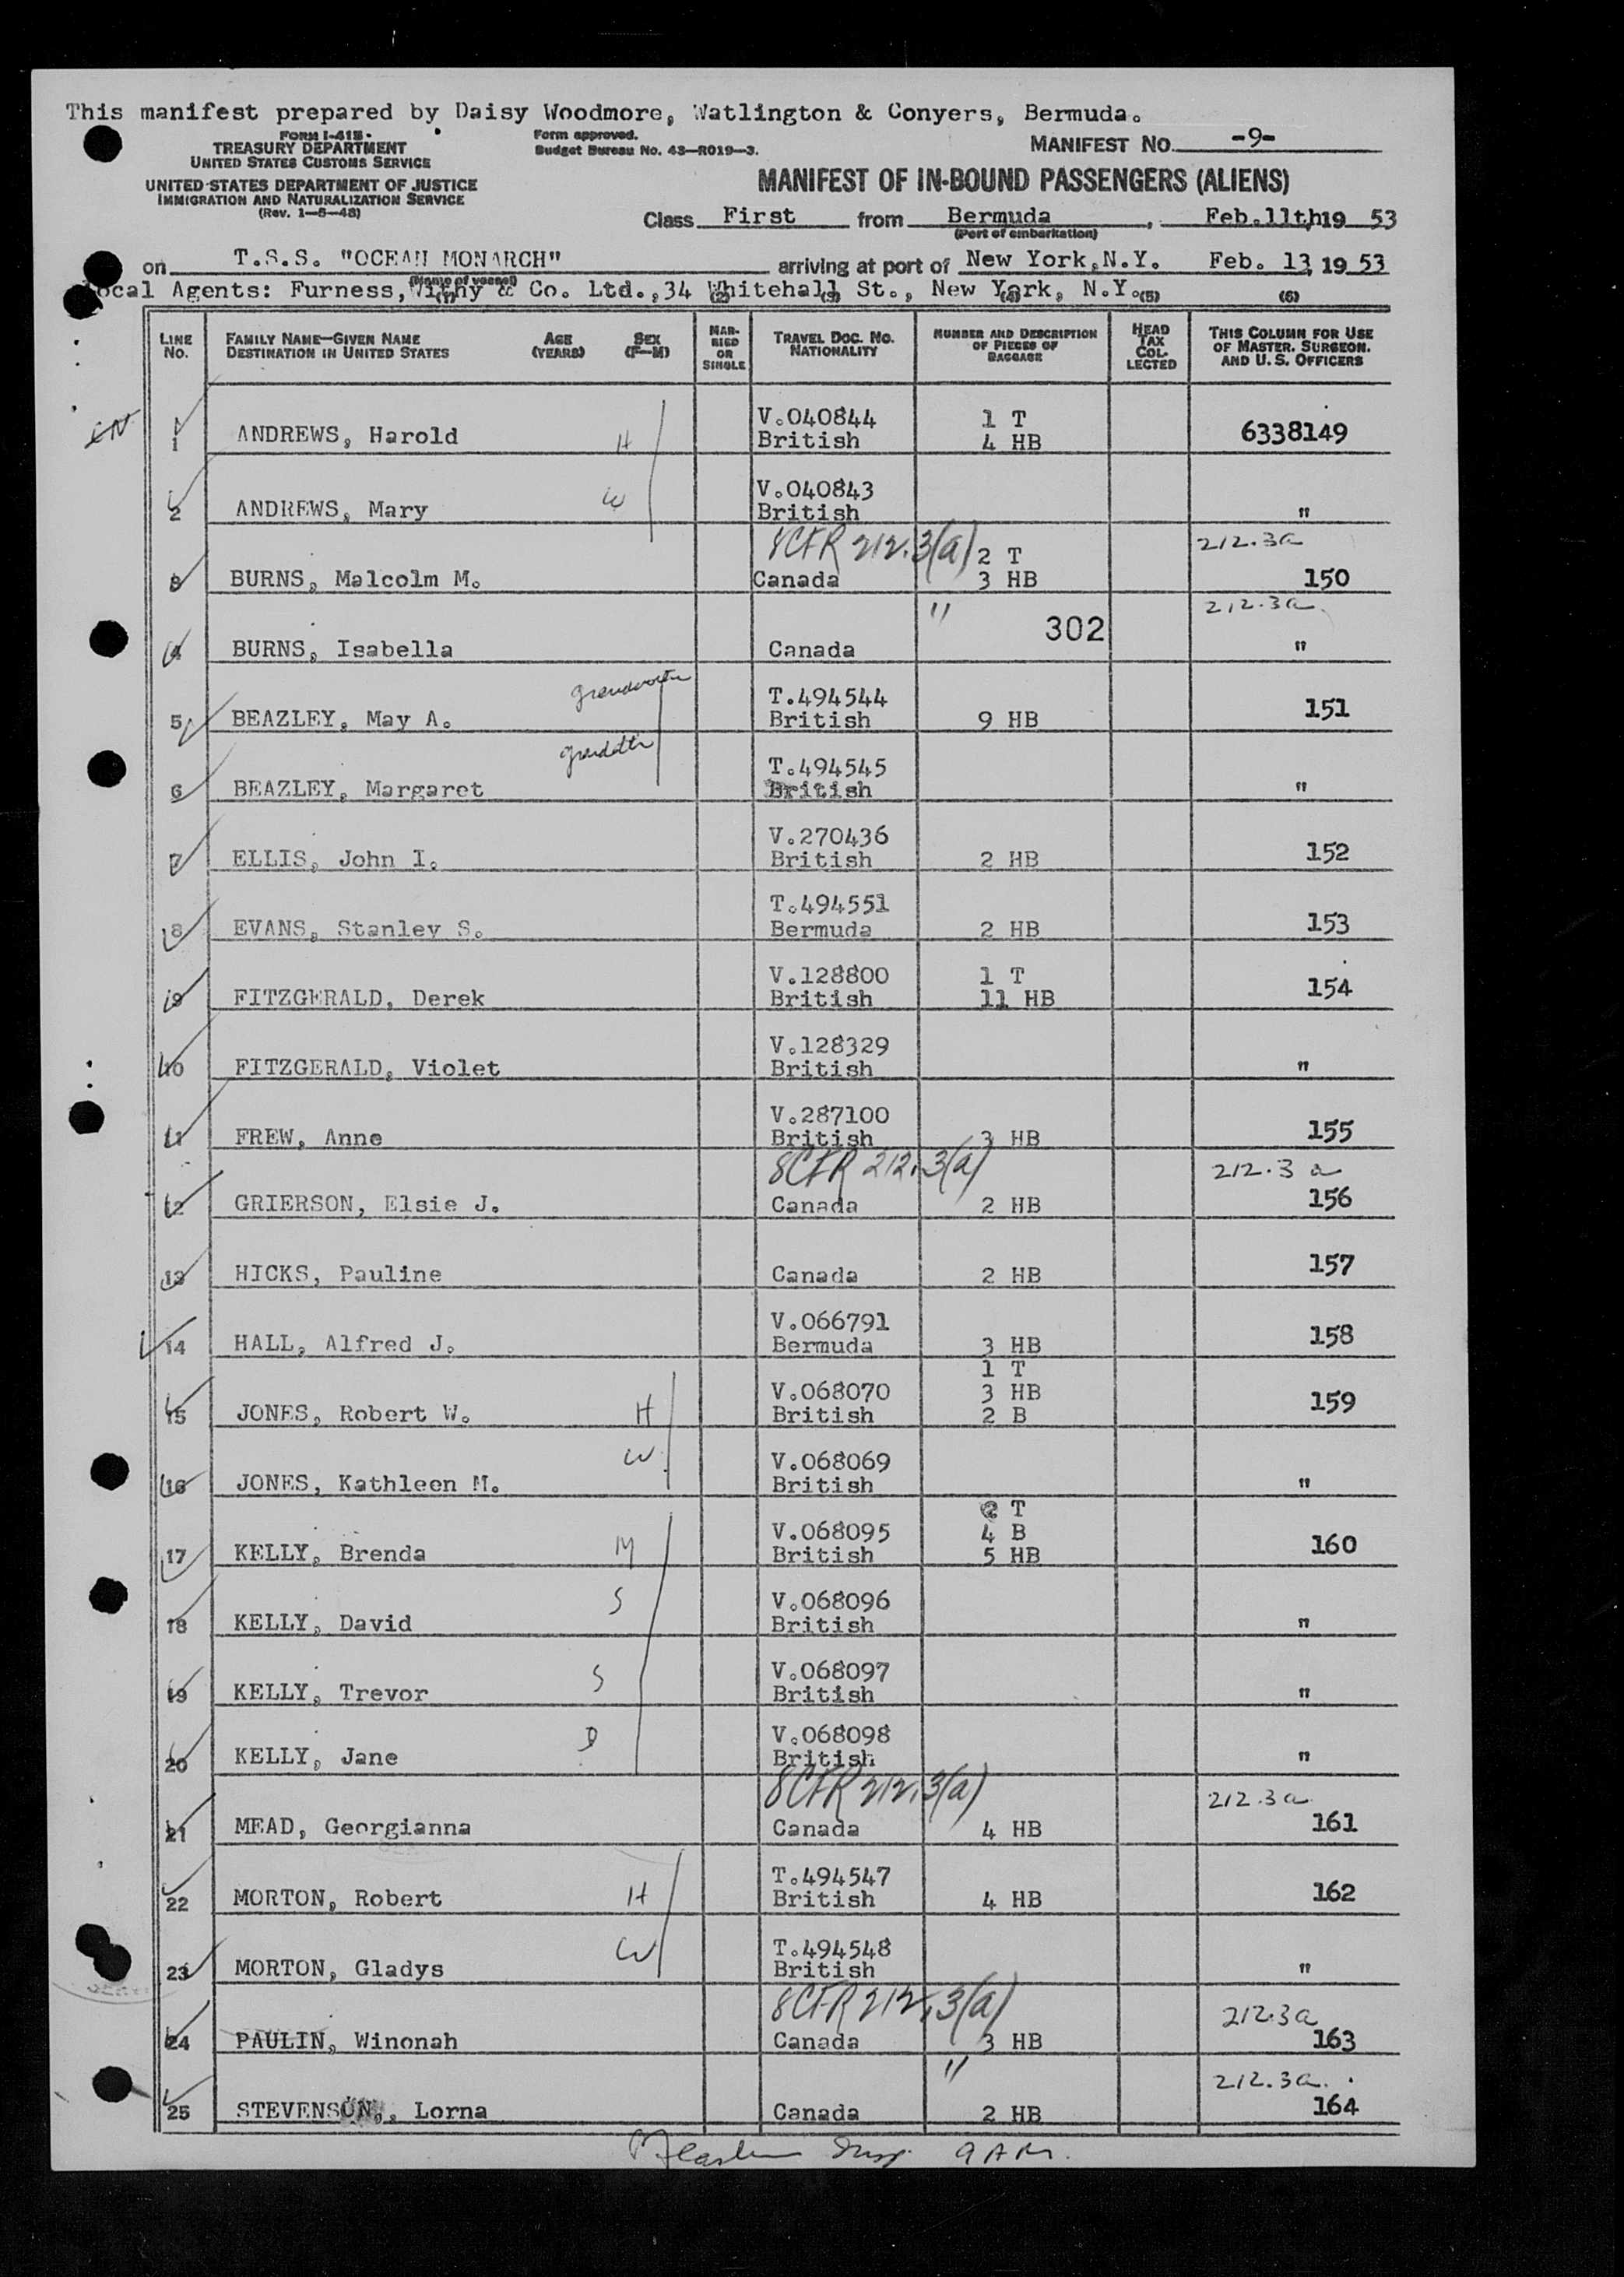 This manifest prepared by Daisy Woodmore, Watlington & Conyers, Bermuda.
FORM I-415
TREASURY DEPARTMENT
UNITED STATES CUSTOMS SERVICE
UNITED STATES DEPARTMENT OF JUSTICE
IMMIGRATION AND NATURALIZATION SERVICE
(Rev. 1-5-48)
Form approved.
Budget Bureau No. 43-R019-3.
MANIFEST NO. -9-
MANIFEST OF IN-BOUND PASSENGERS (ALIENS)
Class First from Bermuda, Feb.11th, 19 53
(Port of embarkation)
on T.S.S. "OCEAN MONARCH" arriving at port of New York, N.Y. Feb. 13, 19 53
(Name of vessel)
Local Agents: Furness, Withy & Co. Ltd., 34 Whitehall St., New York, N.Y.
(1) (2) (3) (4) (5) (6)
LINE NO. FAMILY NAME—GIVEN NAME DESTINATION IN UNITED STATES AGE (YEARS) SEX (F—M) MARRIED OR SINGLE TRAVEL DOC. NO. NATIONALITY NUMBER AND DESCRIPTION OF PIECES OF BAGGAGE HEAD TAX COLLECTED THIS COLUMN FOR USE OF MASTER, SURGEON, AND U. S. OFFICERS
1 ANDREWS, Harold H V.040844 British 1 T 4 HB 6338149
2 ANDREWS, Mary W V.040843 British "
8CFR 212.3(a) 212.3a
3 BURNS, Malcolm M. Canada 2 T 3 HB 150
" 212.3a
4 BURNS, Isabella Canada 302 "
5 BEAZLEY, May A. T.494544 British 9 HB 151
6 BEAZLEY, Margaret T.494545 British "
7 ELLIS, John I. V.270436 British 2 HB 152
8 EVANS, Stanley S. T.494551 Bermuda 2 HB 153
9 FITZGERALD, Derek V.128800 British 1 T 11 HB 154
10 FITZGERALD, Violet V.128329 British "
11 FREW, Anne V.287100 British 3 HB 155
8CFR 212.3(a) 212.3 a
12 GRIERSON, Elsie J. Canada 2 HB 156
13 HICKS, Pauline Canada 2 HB 157
14 HALL, Alfred J. V.066791 Bermuda 3 HB 158
15 JONES, Robert W. H V.068070 British 1 T 3 HB 2 B 159
16 JONES, Kathleen M. W V.068069 British "
17 KELLY, Brenda M V.068095 British 2 T 4 B 5 HB 160
18 KELLY, David S V.068096 British "
19 KELLY, Trevor S V.068097 British "
20 KELLY, Jane D V.068098 British "
8CFR 212.3(a) 212.3a
21 MEAD, Georgianna Canada 4 HB 161
22 MORTON, Robert H T.494547 British 4 HB 162
23 MORTON, Gladys W T.494548 British "
8CFR 212.3(a) 212.3a
24 PAULIN, Winonah Canada 3 HB 163
" 212.3a
25 STEVENSON, Lorna Canada 2 HB 164
9 AM.